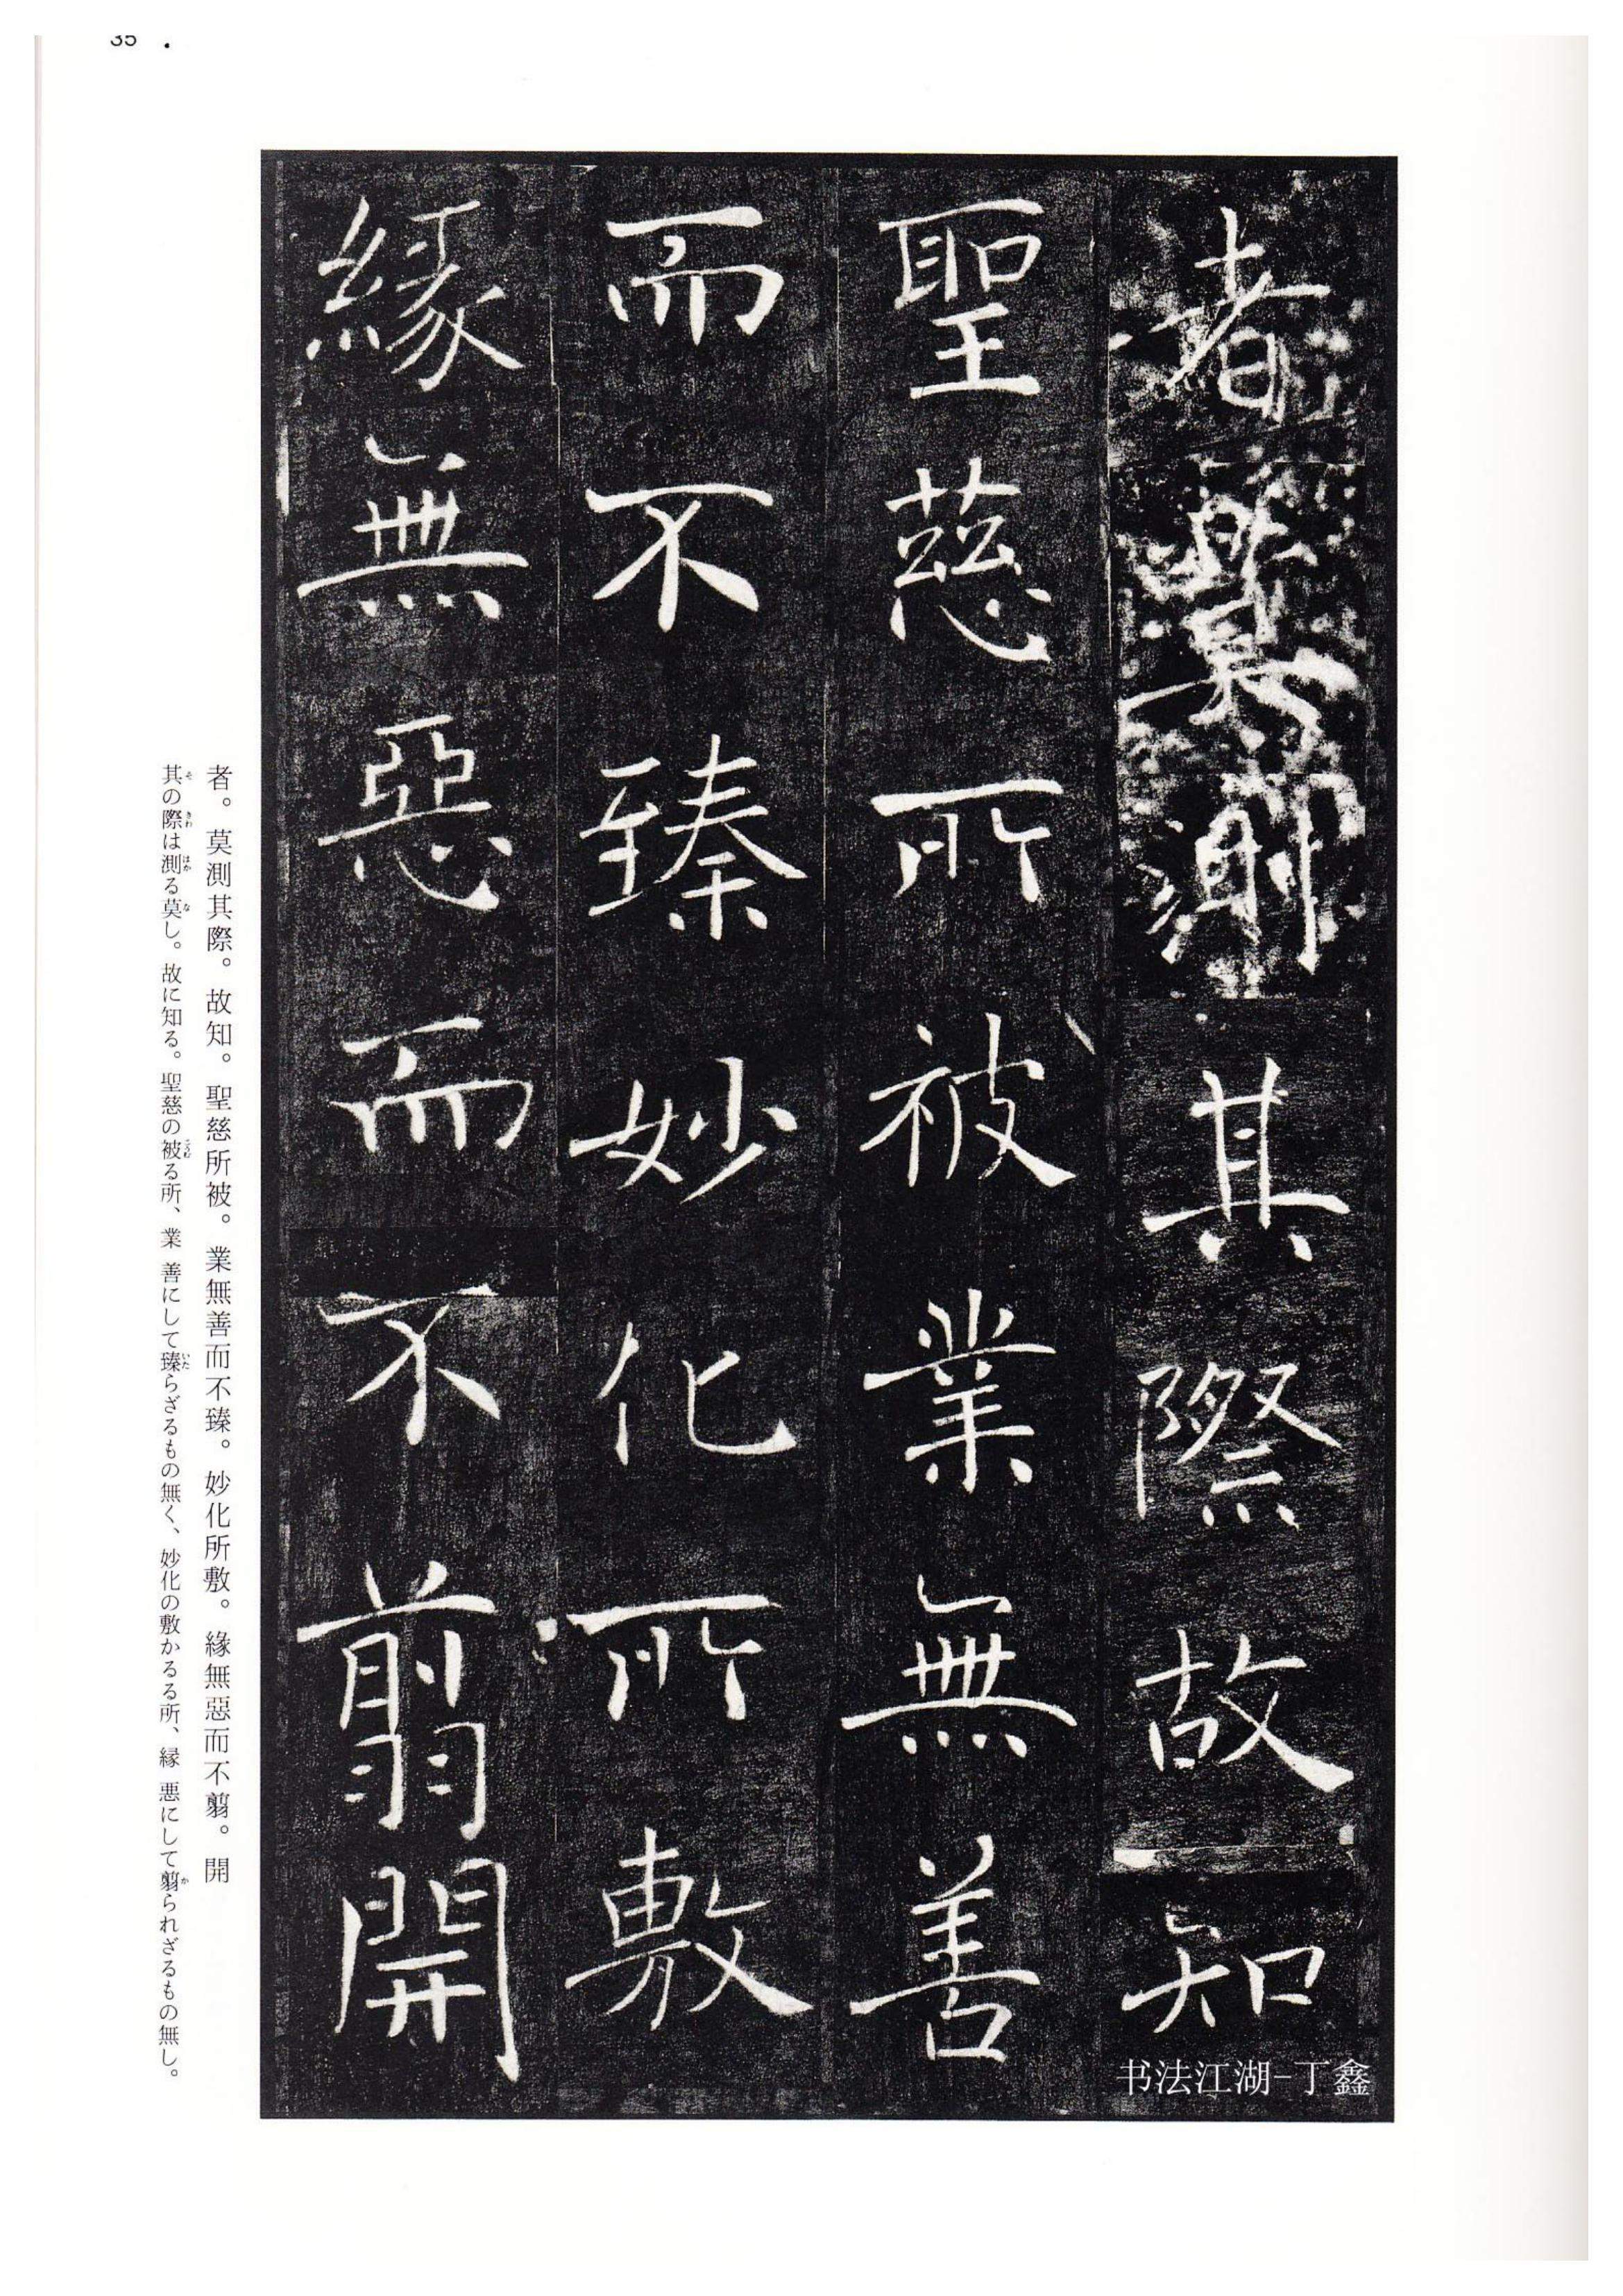 35
者莫測其際故知
聖慈所被業無善
而不臻妙化所敷
緣無惡而不翦開
书法江湖-丁鑫
者。莫測其際。故知。聖慈所被。業無善而不臻。妙化所敷。緣無惡而不翦。開
其の際は測る莫し。故に知る。聖慈の被る所、業 善にして臻らざるもの無く、妙化の敷かるる所、縁 悪にして翦られざるもの無し。